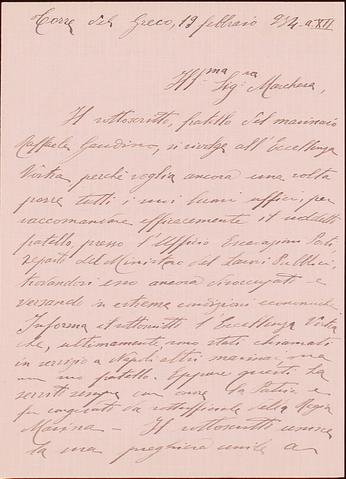 Torre del Greco, 12 febbraio 934-a.XII
Ill.ma Sig.ra Marchesa,
Il sottoscritto, fratello del marinaio
Raffaele Gaudino, si rivolge all'Eccellenza
Vostra, perché voglia ancora una volta
porre tutti i suoi buoni uffici, per
raccomandare efficacemente il suddetto
fratello, presso l'Ufficio Escavazioni Porti
del Ministero dei Lavori Pubblici,
trovandosi esso ancora disoccupato e
versando in estreme condizioni economiche.
Informa il sottoscritto l'Eccellenza Vostra
che, ultimamente, sono stati chiamati
in servizio a Napoli altri marinai, ma
non suo fratello. Eppure questi ha
servito sempre con onore la Patria e
fu congedato da sottufficiale della Regia
Marina - Il sottoscritto unisce
la sua preghiera umile a